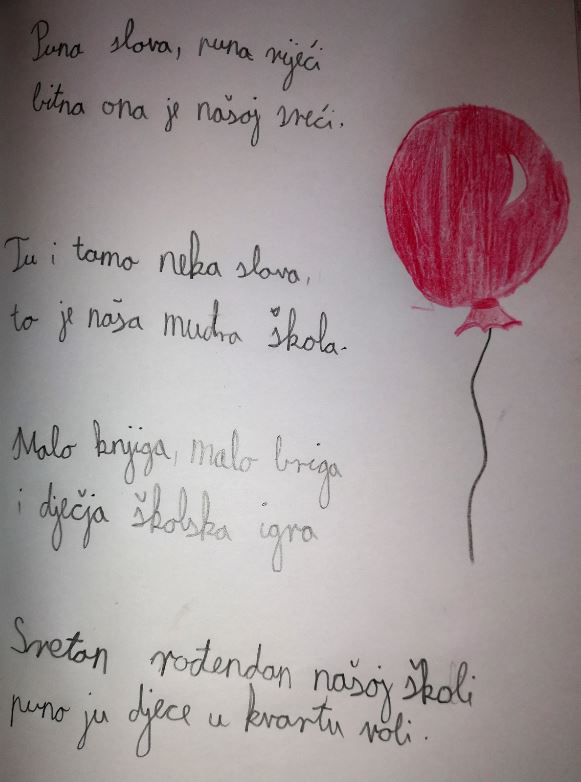 Puna slova, puna riječi
bitna ona je našoj sreći.
Tu i tamo neka slova,
to je naša mudra škola.
Malo knjiga, malo briga
i dječja školska igra
Sretan rođendan našoj školi
puno ju djece u kvartu voli.